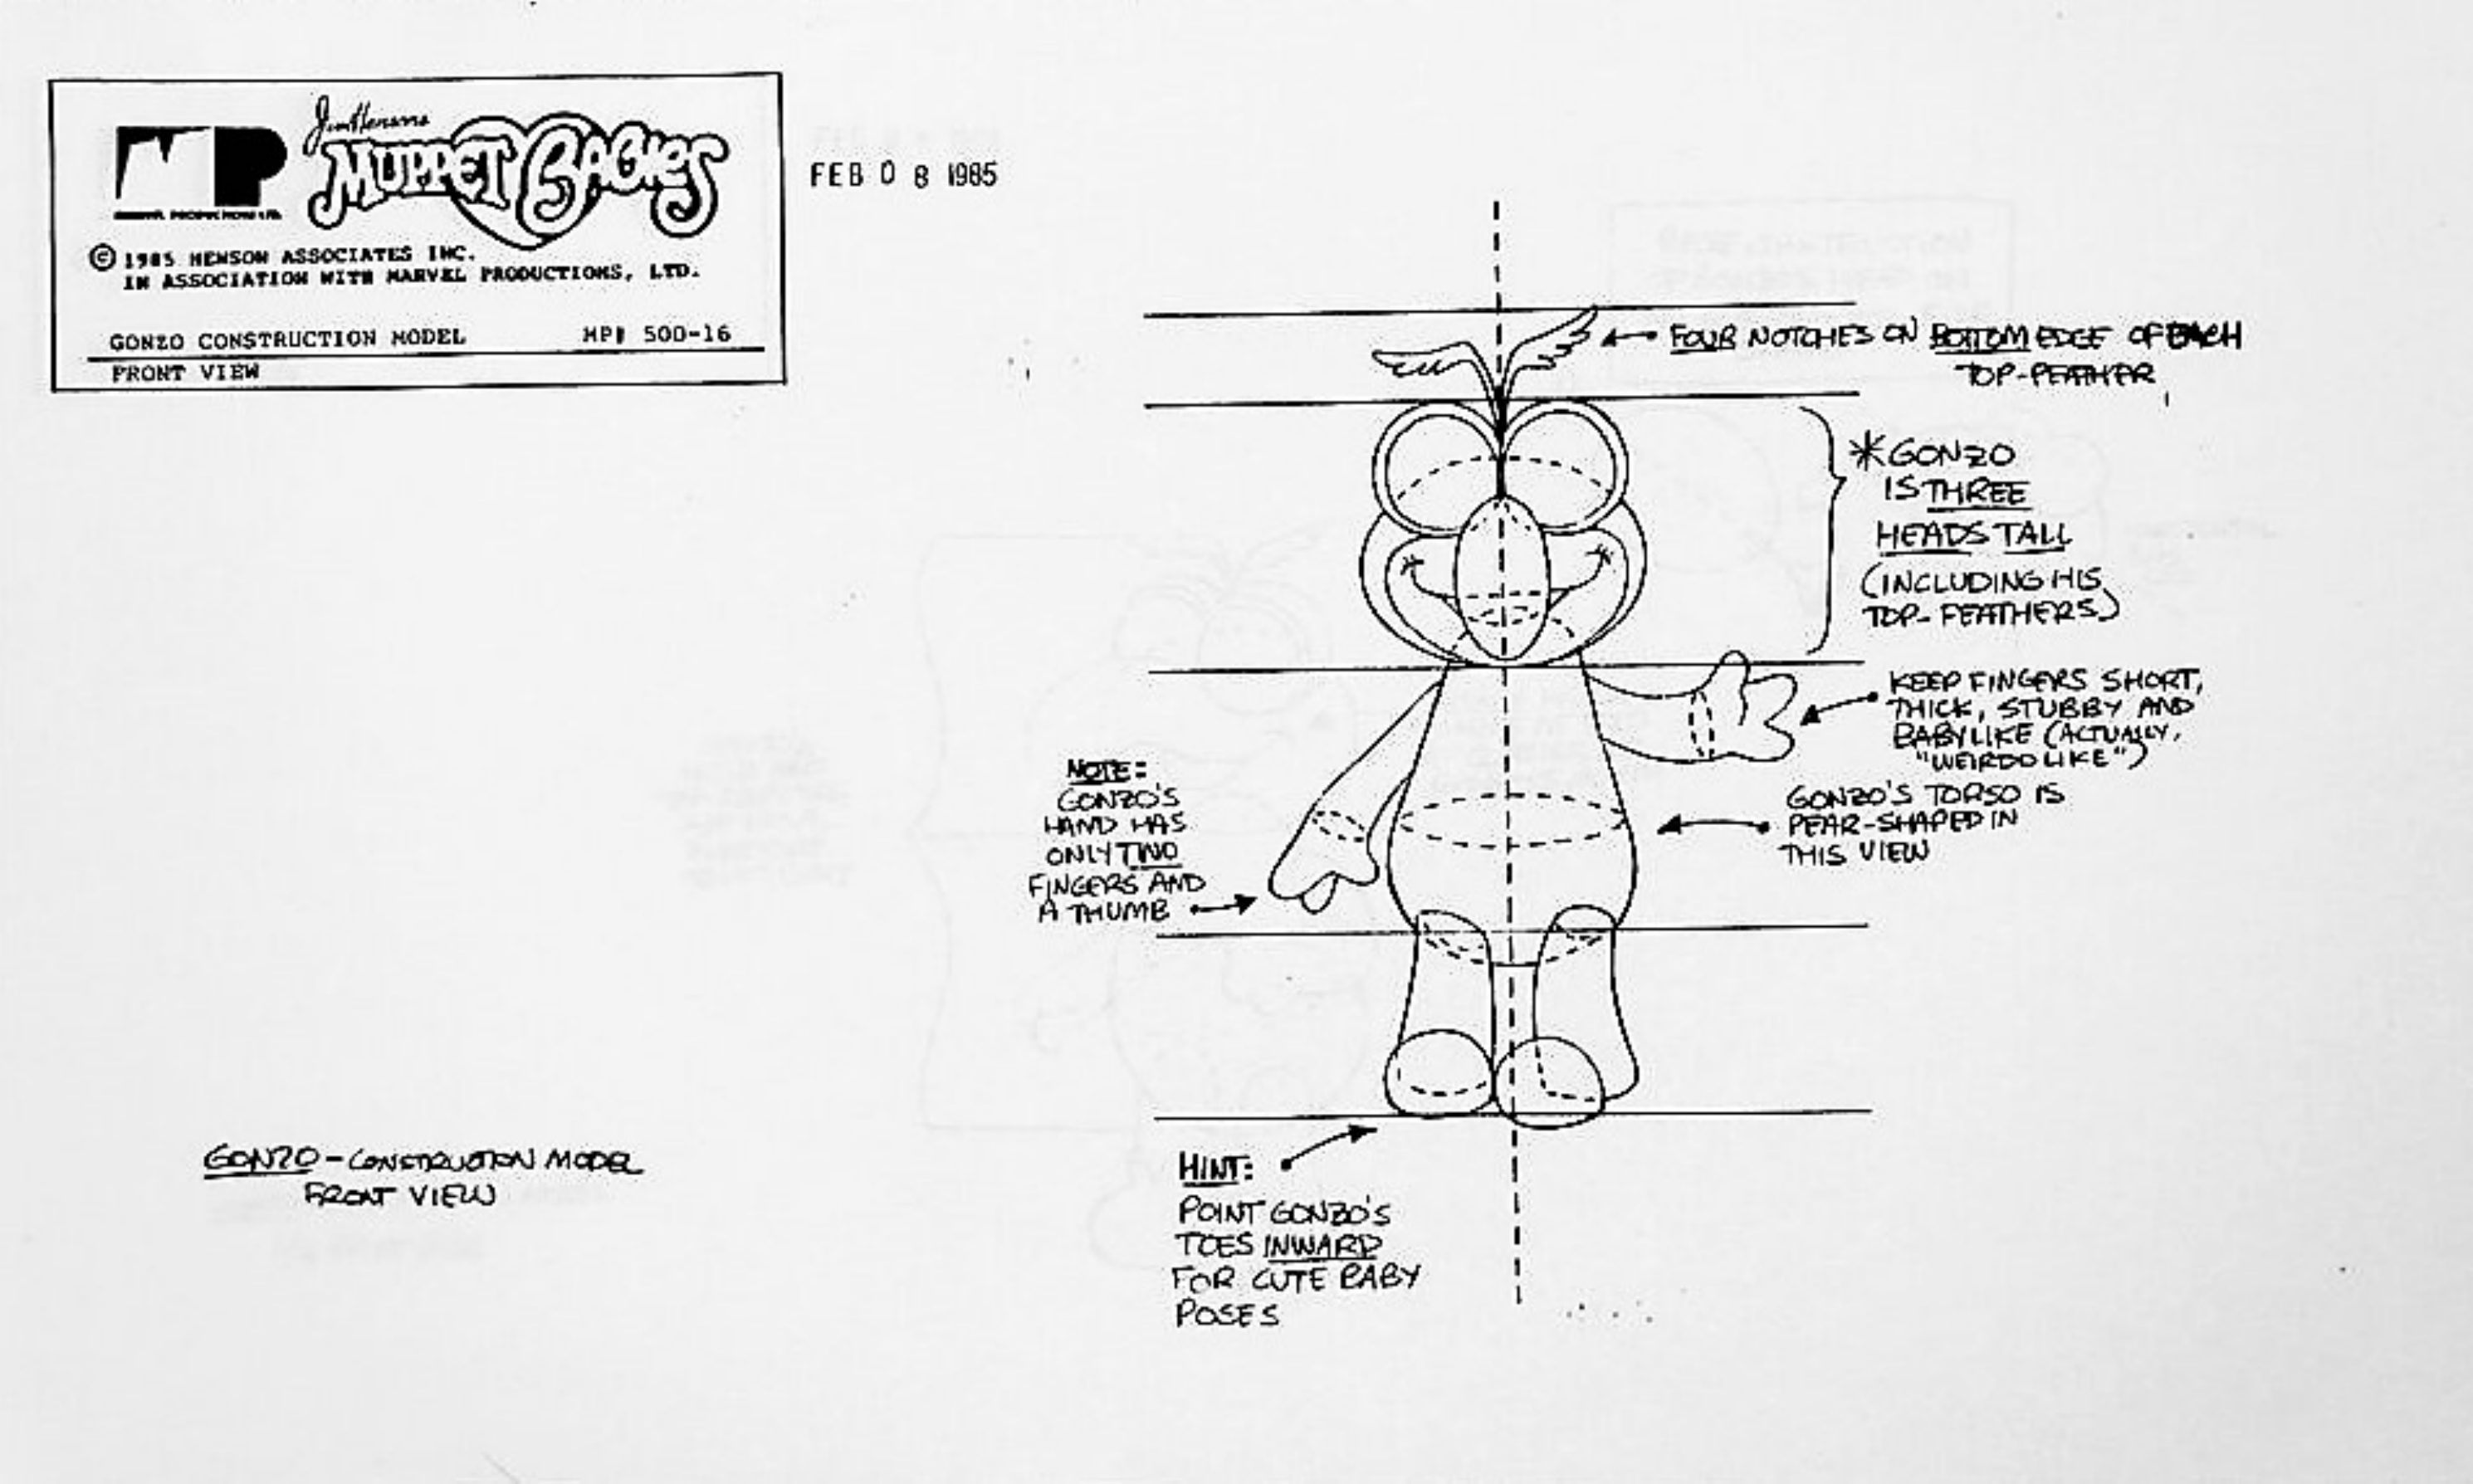 Jim Henson's
MUPPET BABIES
MP
MARVEL PRODUCTIONS LTD.
© 1985 HENSON ASSOCIATES INC.
IN ASSOCIATION WITH MARVEL PRODUCTIONS, LTD.
GONZO CONSTRUCTION MODEL MP# 500-16
FRONT VIEW
FEB 08 1985
FOUR NOTCHES ON BOTTOM EDGE OF EACH
TOP-FEATHER
*GONZO
IS THREE
HEADS TALL
(INCLUDING HIS
TOP-FEATHERS)
KEEP FINGERS SHORT,
THICK, STUBBY AND
BABYLIKE (ACTUALLY,
"WEIRDO LIKE")
GONZO'S TORSO IS
PEAR-SHAPED IN
THIS VIEW
NOTE:
GONZO'S
HAND HAS
ONLY TWO
FINGERS AND
A THUMB
HINT:
POINT GONZO'S
TOES INWARD
FOR CUTE BABY
POSES
GONZO - CONSTRUCTION MODEL
FRONT VIEW